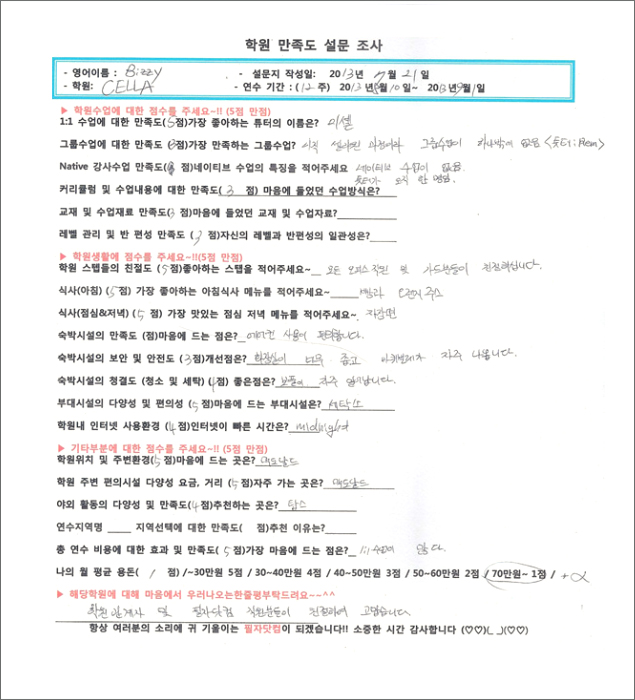 학원 만족도 설문 조사
- 영어이름 : Bizzy - 설문지 작성일: 2013년 7월 21일
- 학원: CELLA - 연수 기간 : (12 주) 2013년 월10일~ 2013년 월1일
▶ 학원수업에 대한 점수를 주세요~!! (5점 만점)
1:1 수업에 대한 만족도(5점)가장 좋아하는 튜터의 이름은? 미셸
그룹수업에 대한 만족도(3점)가장 만족하는 그룹수업? 아직 과정이라 그룹수업이 하나밖에 없음 <튜터:Rem>
Native 강사수업 만족도( 점)네이티브 수업의 특징을 적어주세요 네이티브 수업이 없음.
튜터가 오직 한 명임.
커리큘럼 및 수업내용에 대한 만족도( 3 점) 마음에 들었던 수업방식은?
교재 및 수업재료 만족도(3점)마음에 들었던 교재 및 수업자료?
레벨 관리 및 반 편성 만족도 ( 3 점)자신의 레벨과 반편성의 일관성은?
▶ 학원생활에 점수를 주세요~!!(5점 만점)
학원 스텝들의 친절도 (5점)좋아하는 스탭을 적어주세요~ 모든 오피스 직원 및 가드분들이 친절하십니다.
식사(아침) (5점) 가장 좋아하는 아침식사 메뉴를 적어주세요~ 빵과 오렌지 주스
식사(점심&저녁) (5 점) 가장 맛있는 점심 저녁 메뉴를 적어주세요~ 자장면
숙박시설의 만족도 (점)마음에 드는 점은? 에어컨 사용이 편리합니다.
숙박시설의 보안 및 안전도 (3점)개선점은? 화장실이 너무 좁고 바퀴벌레가 자주 나옵니다.
숙박시설의 청결도 (청소 및 세탁) (4점) 좋은점은? 자주 합니다.
부대시설의 다양성 및 편의성 (5점)마음에 드는 부대시설은? 세탁소
학원내 인터넷 사용환경 (4점)인터넷이 빠른 시간은? midnight
▶ 기타부분에 대한 점수를 주세요~!! (5점 만점)
학원위치 및 주변환경(5점)마음에 드는 곳은? 맥도날드
학원 주변 편의시설 다양성 요금, 거리 (5점)자주 가는 곳은? 맥도날드
야외 활동의 다양성 및 만족도(4점)추천하는 곳은? 탑스
연수지역명 ____ 지역선택에 대한 만족도( 점)추천 이유는?
총 연수 비용에 대한 효과 및 만족도( 5점)가장 마음에 드는 점은? 1:1 수업이 많다.
나의 월 평균 용돈( 1 점) /~30만원 5점 / 30~40만원 4점 / 40~50만원 3점 / 50~60만원 2점 / 70만원~ 1점 / +α
▶ 해당학원에 대해 마음에서 우러나오는한줄평부탁드려요~~^^
학원 관계자 및 필자닷컴 직원분들이 친절하여 고맙습니다.
항상 여러분의 소리에 귀 기울이는 필자닷컴이 되겠습니다!! 소중한 시간 감사합니다 (♡♡)(_ _)(♡♡)